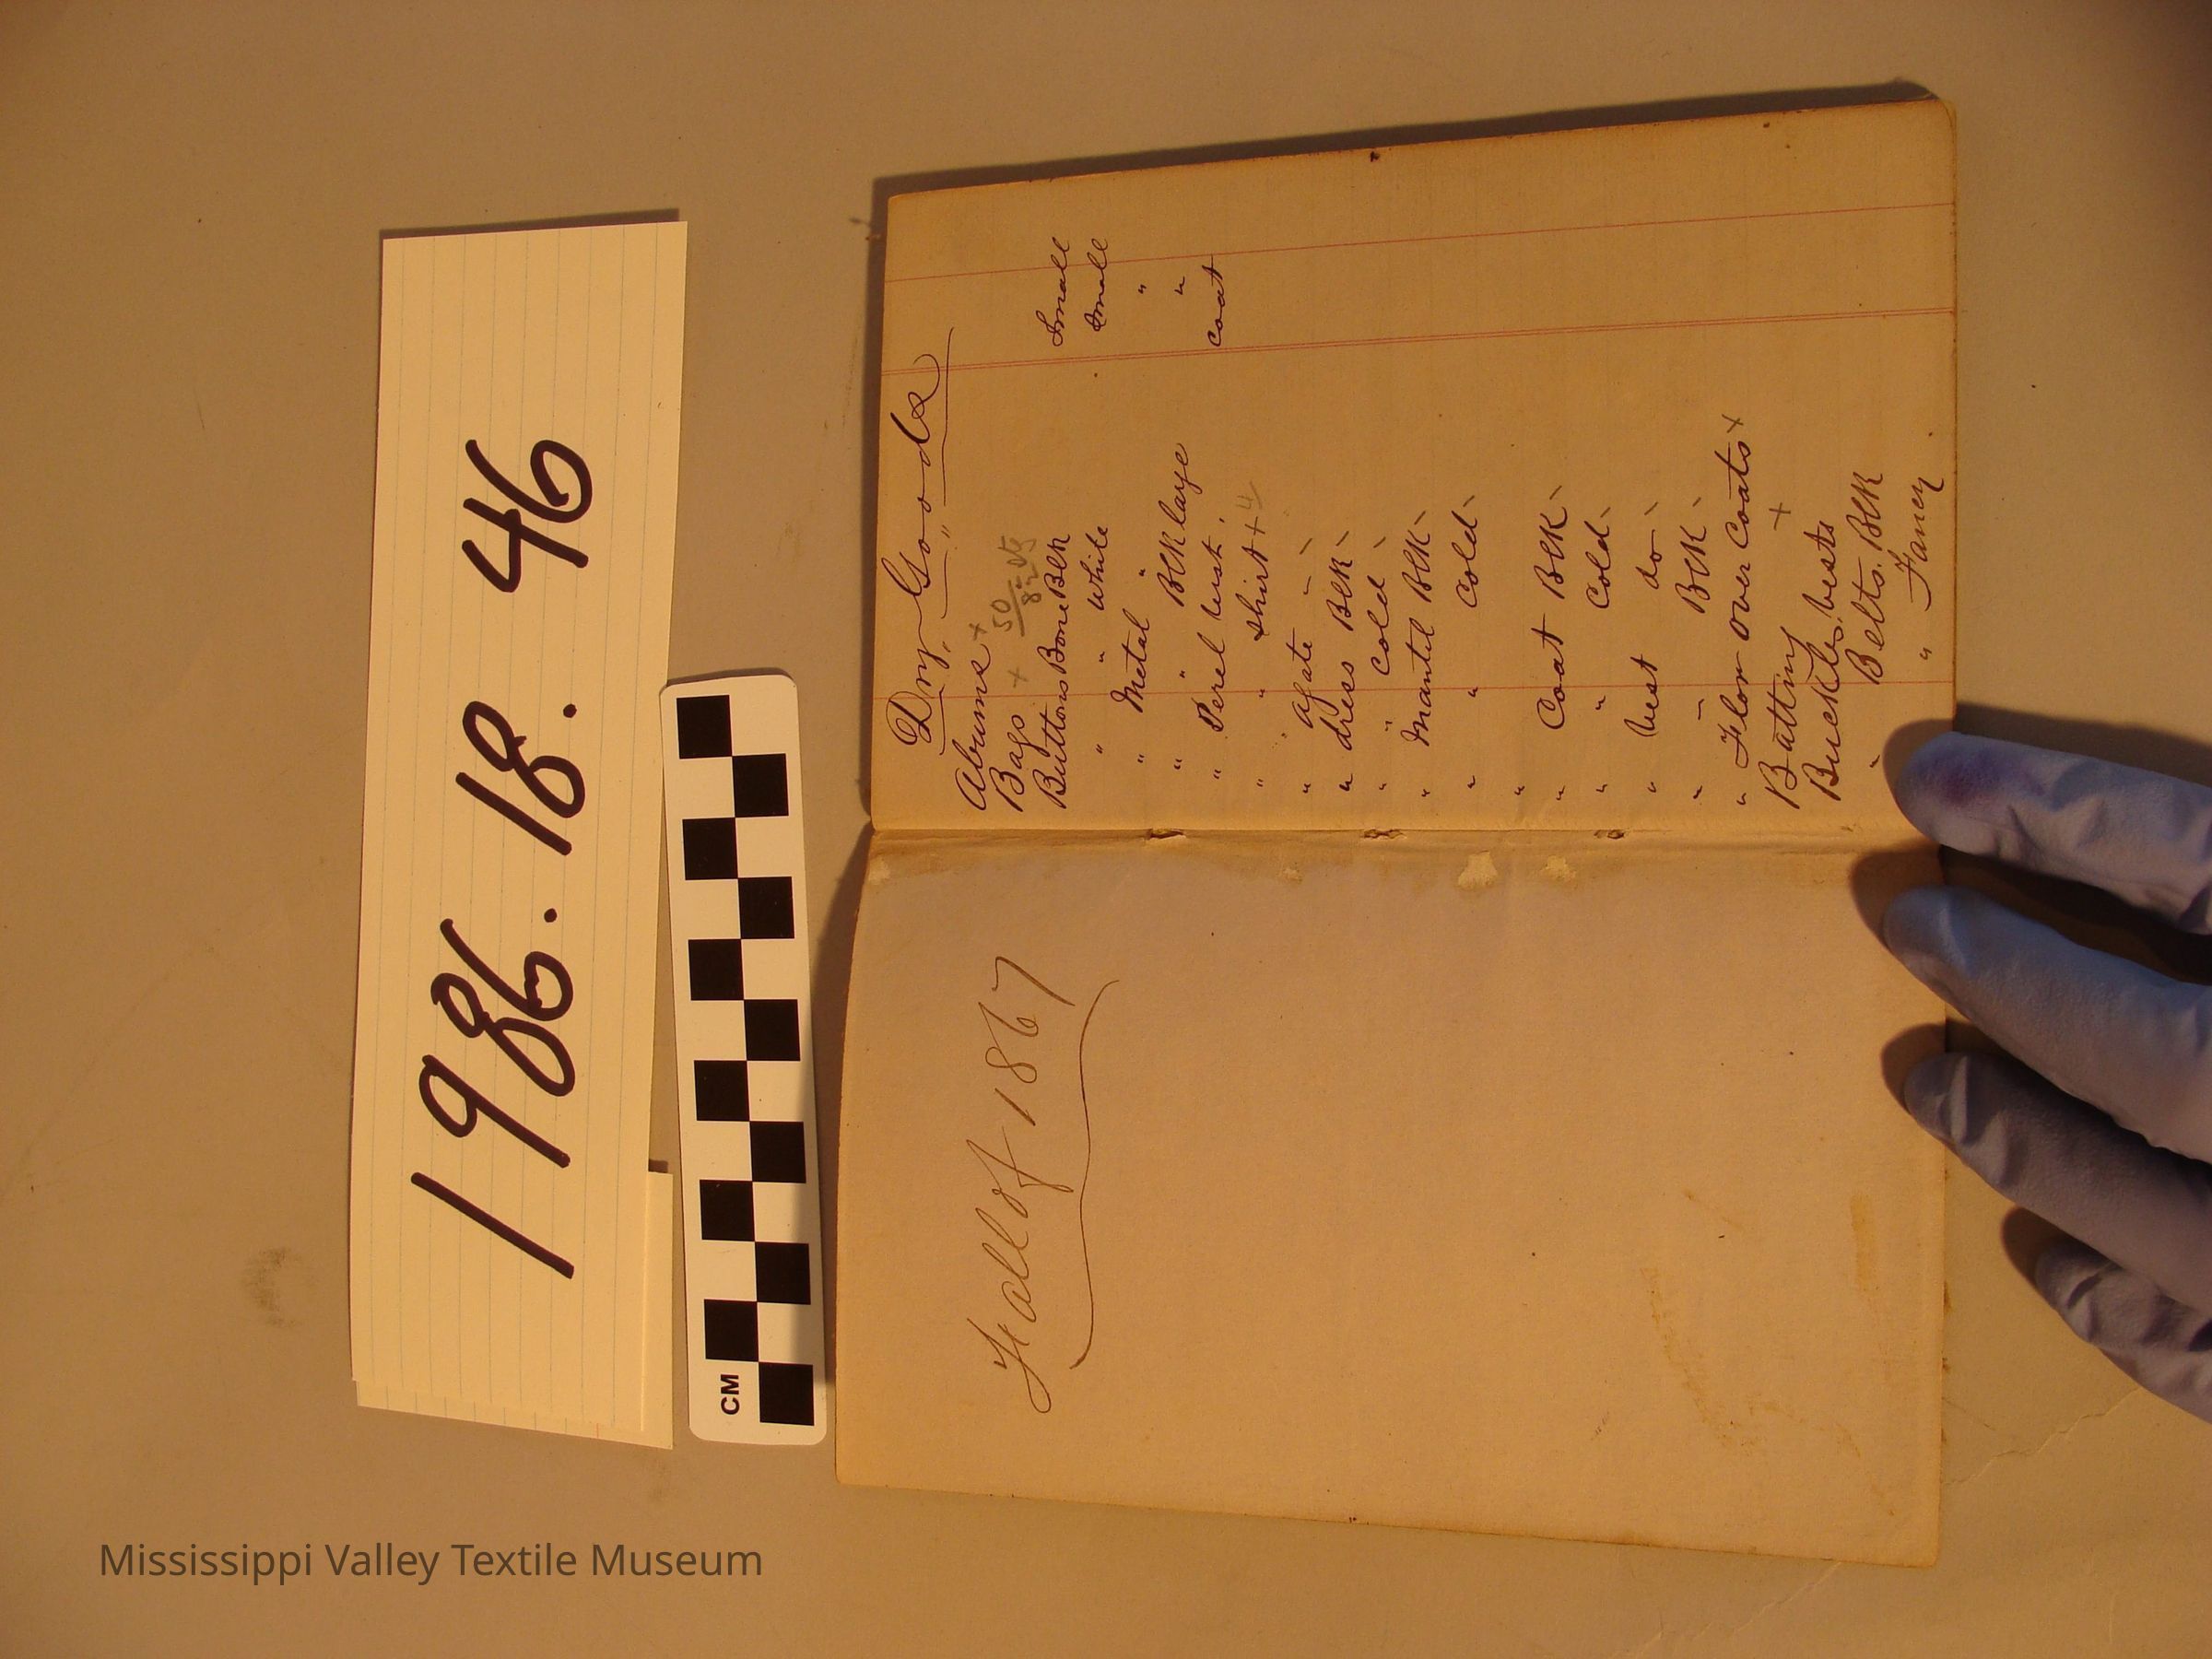 1986.18.46
CM
Fall of 1867
Dry Goods
Abums x
Bags x 50
Buttons Bone Blk Small
" " White Small
" Metal " "
" " Blk laye "
" Perel vest. coat
" " shirt + 4
" agate
" dress Blk
" " Cold
" Mantel Blk
" " Cold
"
" Coat Blk
" " Cold
" Vest do
" " Blk
" Flor over Coats x
Batting x
Buckles vests
" Belts. Blk
" Fancy
Mississippi Valley Textile Museum